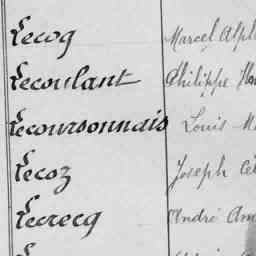 Lecoq Marcel Alph
Lecoulant Philippe
Lecoursonnais Louis M
Lecoz Joseph Cé
Lecrecq André Am